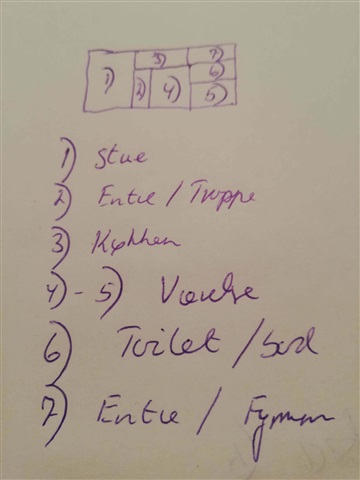 1) 3) 7)
2) 4) 6)
5)
1) Stue
2) Entre / Trappe
3) Køkken
4) - 5) Værelse
6) Toilet / bad
7) Entre / Fyrrum